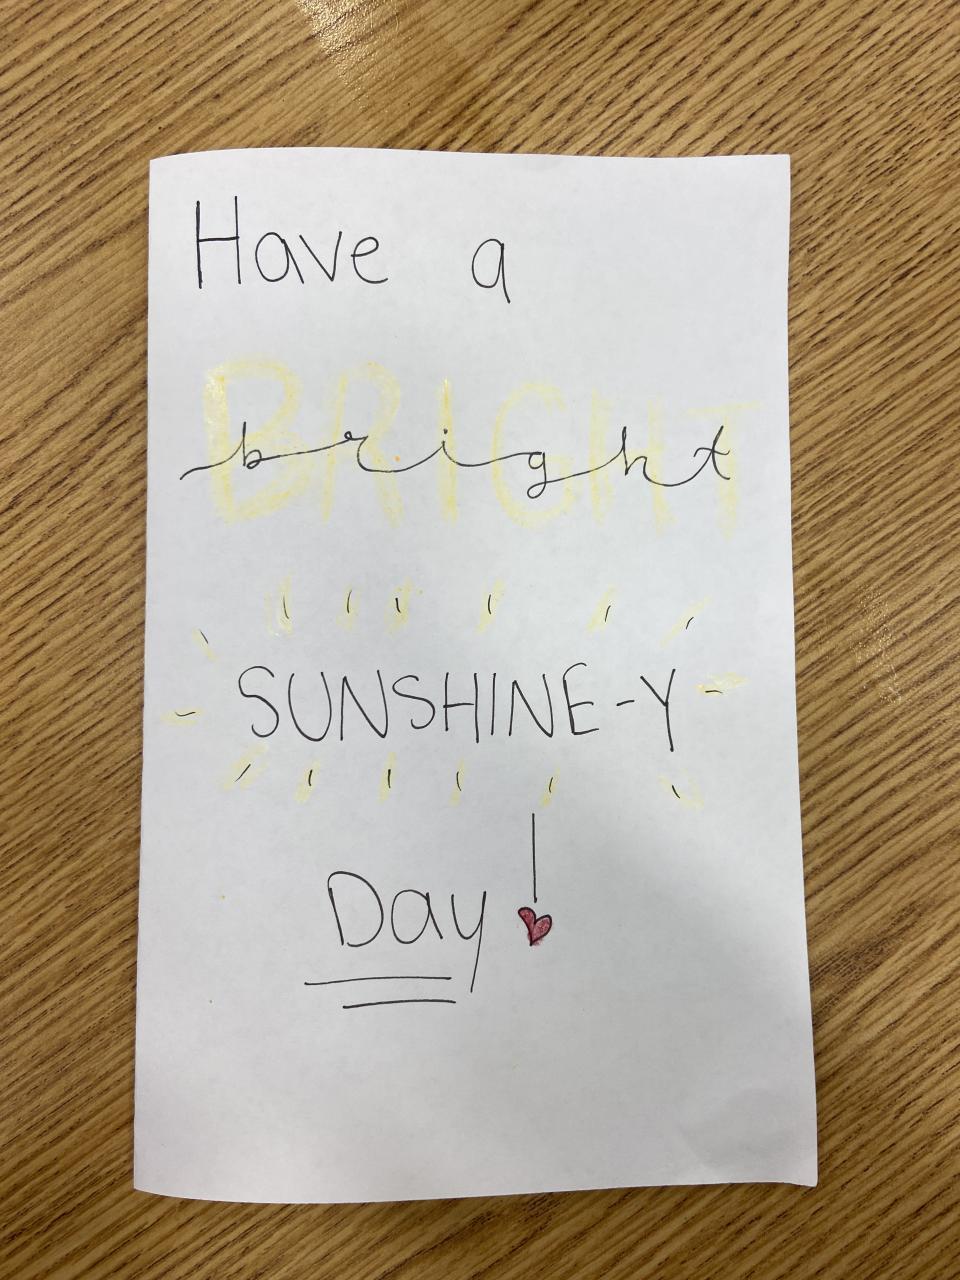 Have a
BRIGHT
bright
SUNSHINE-Y
Day!